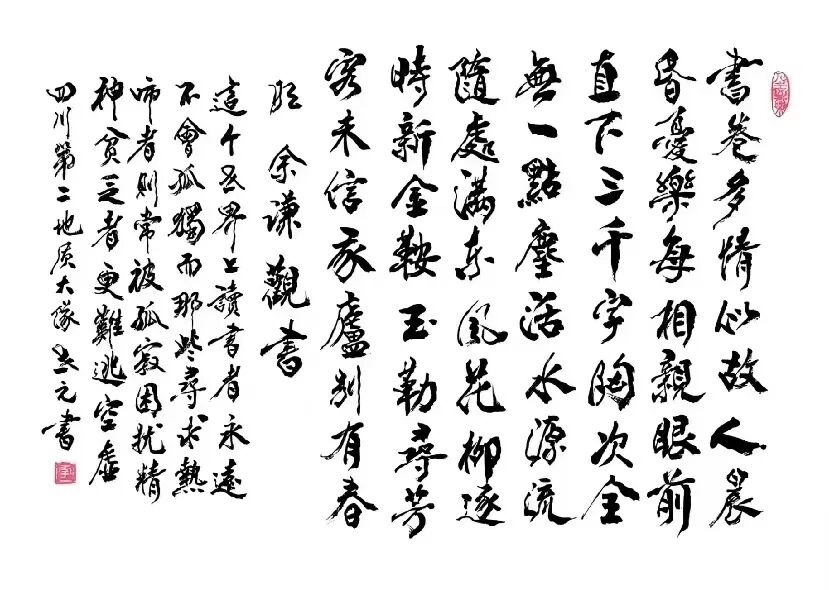 書卷多情似故人晨
昏憂樂每相親眼前
直下三千字胸次全
無一點塵活水源流
隨處滿東風花柳逐
時新金鞍玉勒尋芳
客未信我廬別有春
明 余謙觀書
這个世界上讀書者永遠
不會孤獨而那些尋求熱
者則常被孤寂困扰精
神貧乏者更難逃空虛
四川第二地质大隊 元書